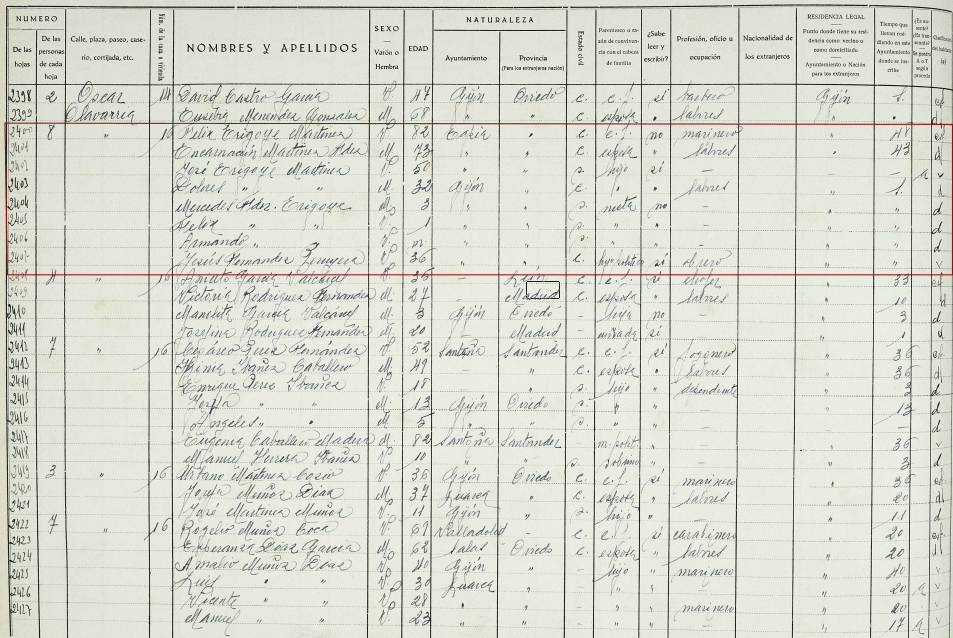 NUMERO
De las hojas
De las personas de cada hoja
Calle, plaza, paseo, caserío, cortijada, etc.
Núm. de la casa o vivienda
NOMBRES Y APELLIDOS
SEXO
Varón o Hembra
EDAD
NATURALEZA
Ayuntamiento
Provincia
(Para los extranjeros nación)
Estado civil
Parentesco o razón de convivencia con el cabeza de familia
¿Sabe leer y escribir?
Profesión, oficio u ocupación
Nacionalidad de los extranjeros
RESIDENCIA LEGAL
Punto donde tiene su residencia como vecino o como domiciliado
Ayuntamiento o Nación para los extranjeros
Tiempo que llevan residiendo en este Ayuntamiento donde se inscribe
2398 2 Oscar 14 David Castro García V. 47 Gijón Oviedo c. c. f. sí Gijón
2399 Olavarria Eusebia Menéndez González M. 68 " " c. esposa " labores "
2400 8 " 16 Felix Erigoye Martinez V. 82 " c. c. f. no marinero " 48
2401 Encarnación Martinez Hdez M. 73 " " c. esposa " labores " 43 d
2402 José Erigoye Martinez V. 50 " " s. hijo sí - a v
2403 Dolores " " M. 32 Gijón " c. " " labores " d
2404 Mercedes Hdez. Erigoye M. 3 " " s. nieta no - " " d
2405 Felix " " V. 1 " " s. " " - " " d
2406 Armando " " V. m. " " s. " " - " " d
2407 Jesús Fernandez V. 36 " " c. hijo político sí obrero " " v
2408 4 " 16 García Valcárcel V. 35 - León c. c. f. sí chofer " 33
2409 Victoria Rodriguez Fernandez M. 27 - Madrid c. esposa " labores " 10 d
2410 Manolita Garcia Valcárcel M. 3 Gijón Oviedo - hija no - " 3 d
2411 Josefina Rodriguez Fernandez M. 20 - Madrid - cuñada sí - " 1 d
2412 7 " 16 Fernández V. 52 Santoña Santander c. c. f. sí fogonero " 36
2413 Ibañez Caballero M. 49 " " c. esposa " labores " 36 d
2414 Enrique Perez Ibañez V. 18 " " s. hijo " dependiente " d
2415 " " M. 13 Gijón Oviedo s. " " - " 13 d
2416 Angeles " " M. 5 " " " " - " - d
2417 Eugenia Caballero M. 82 Santoña Santander - m. polit. - - " 36 v
2418 Manuel Herrera Ibañez V. 10 " " s. sobrino - - " 3 d
2419 3 " 16 Urbano Martinez V. 36 Gijón Oviedo c. c. f. sí marinero " 36
2420 Josefa Muñoz Diaz M. 37 Luarca " c. esposa " labores " 20 d
2421 José Martinez Muñoz V. 11 Gijón " s. hijo " - " 11 d
2422 7 " 16 Rogelio Muñoz V. 61 Valladolid - c. c. f. sí carabinero " 20
2423 Esperanza Diaz García M. 62 Salas Oviedo c. esposa " labores " 20 d
2424 Amalio Muñoz Diaz V. 40 Gijón " " hijo " marinero " 40 v
2425 Luis " " V. 30 Luarca " " " " - " 20 a v
2426 Vicente " " V. 28 " " " " " marinero " 20 v
2427 Manuel " " V. 23 " " " " " - " 17 a v